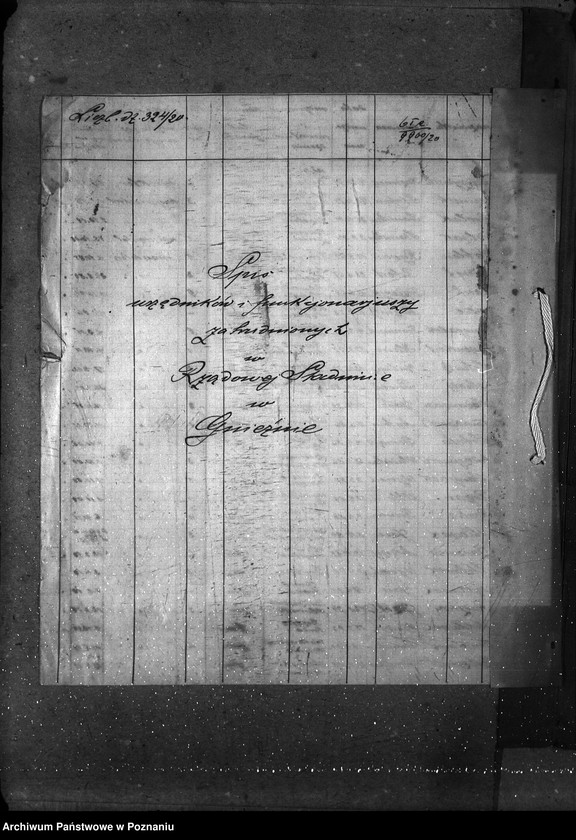 Liczb. dz. 324/20.
Spis
urzędników i funkcjonarjuszy
zatrudnionych
w
Rządowej Stadninie
w
Gnieźnie
Archiwum Państwowe w Poznaniu